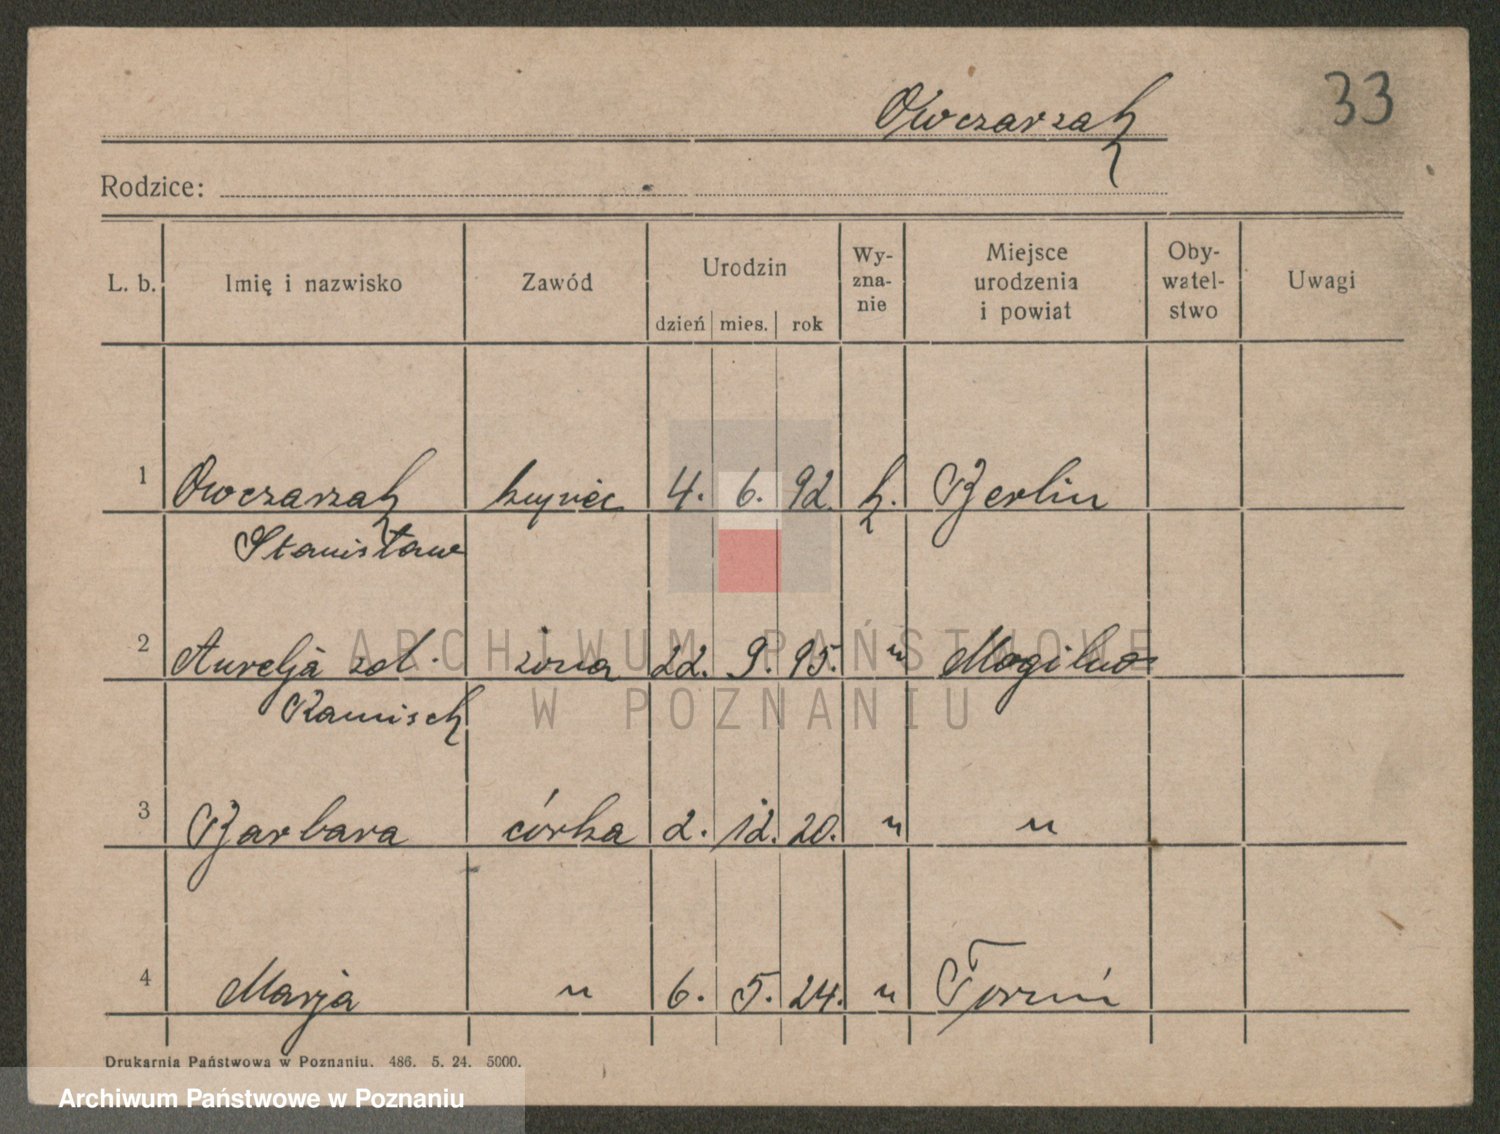 Owczarzak
33
Rodzice:
L. b. Imię i nazwisko Zawód Urodzin dzień mies. rok Wy-zna-nie Miejsce urodzenia i powiat Oby-watel-stwo Uwagi
1 Owczarzak kupiec 4. 6. 92. k. Berlin
Stanisław
2 Aurelja zd. żona 22. 9. 95. " Mogilno
Kamisch
3 Barbara córka 2. 12. 20. " "
4 Marja " 6. 5. 24. " Toruń
Drukarnia Państwowa w Poznaniu. 486. 5. 24. 5000.
ARCHIWUM PAŃSTWOWE
W POZNANIU
Archiwum Państwowe w Poznaniu